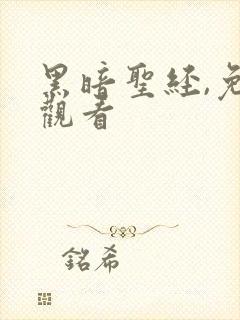 黑暗聖經,免
觀看
銘希